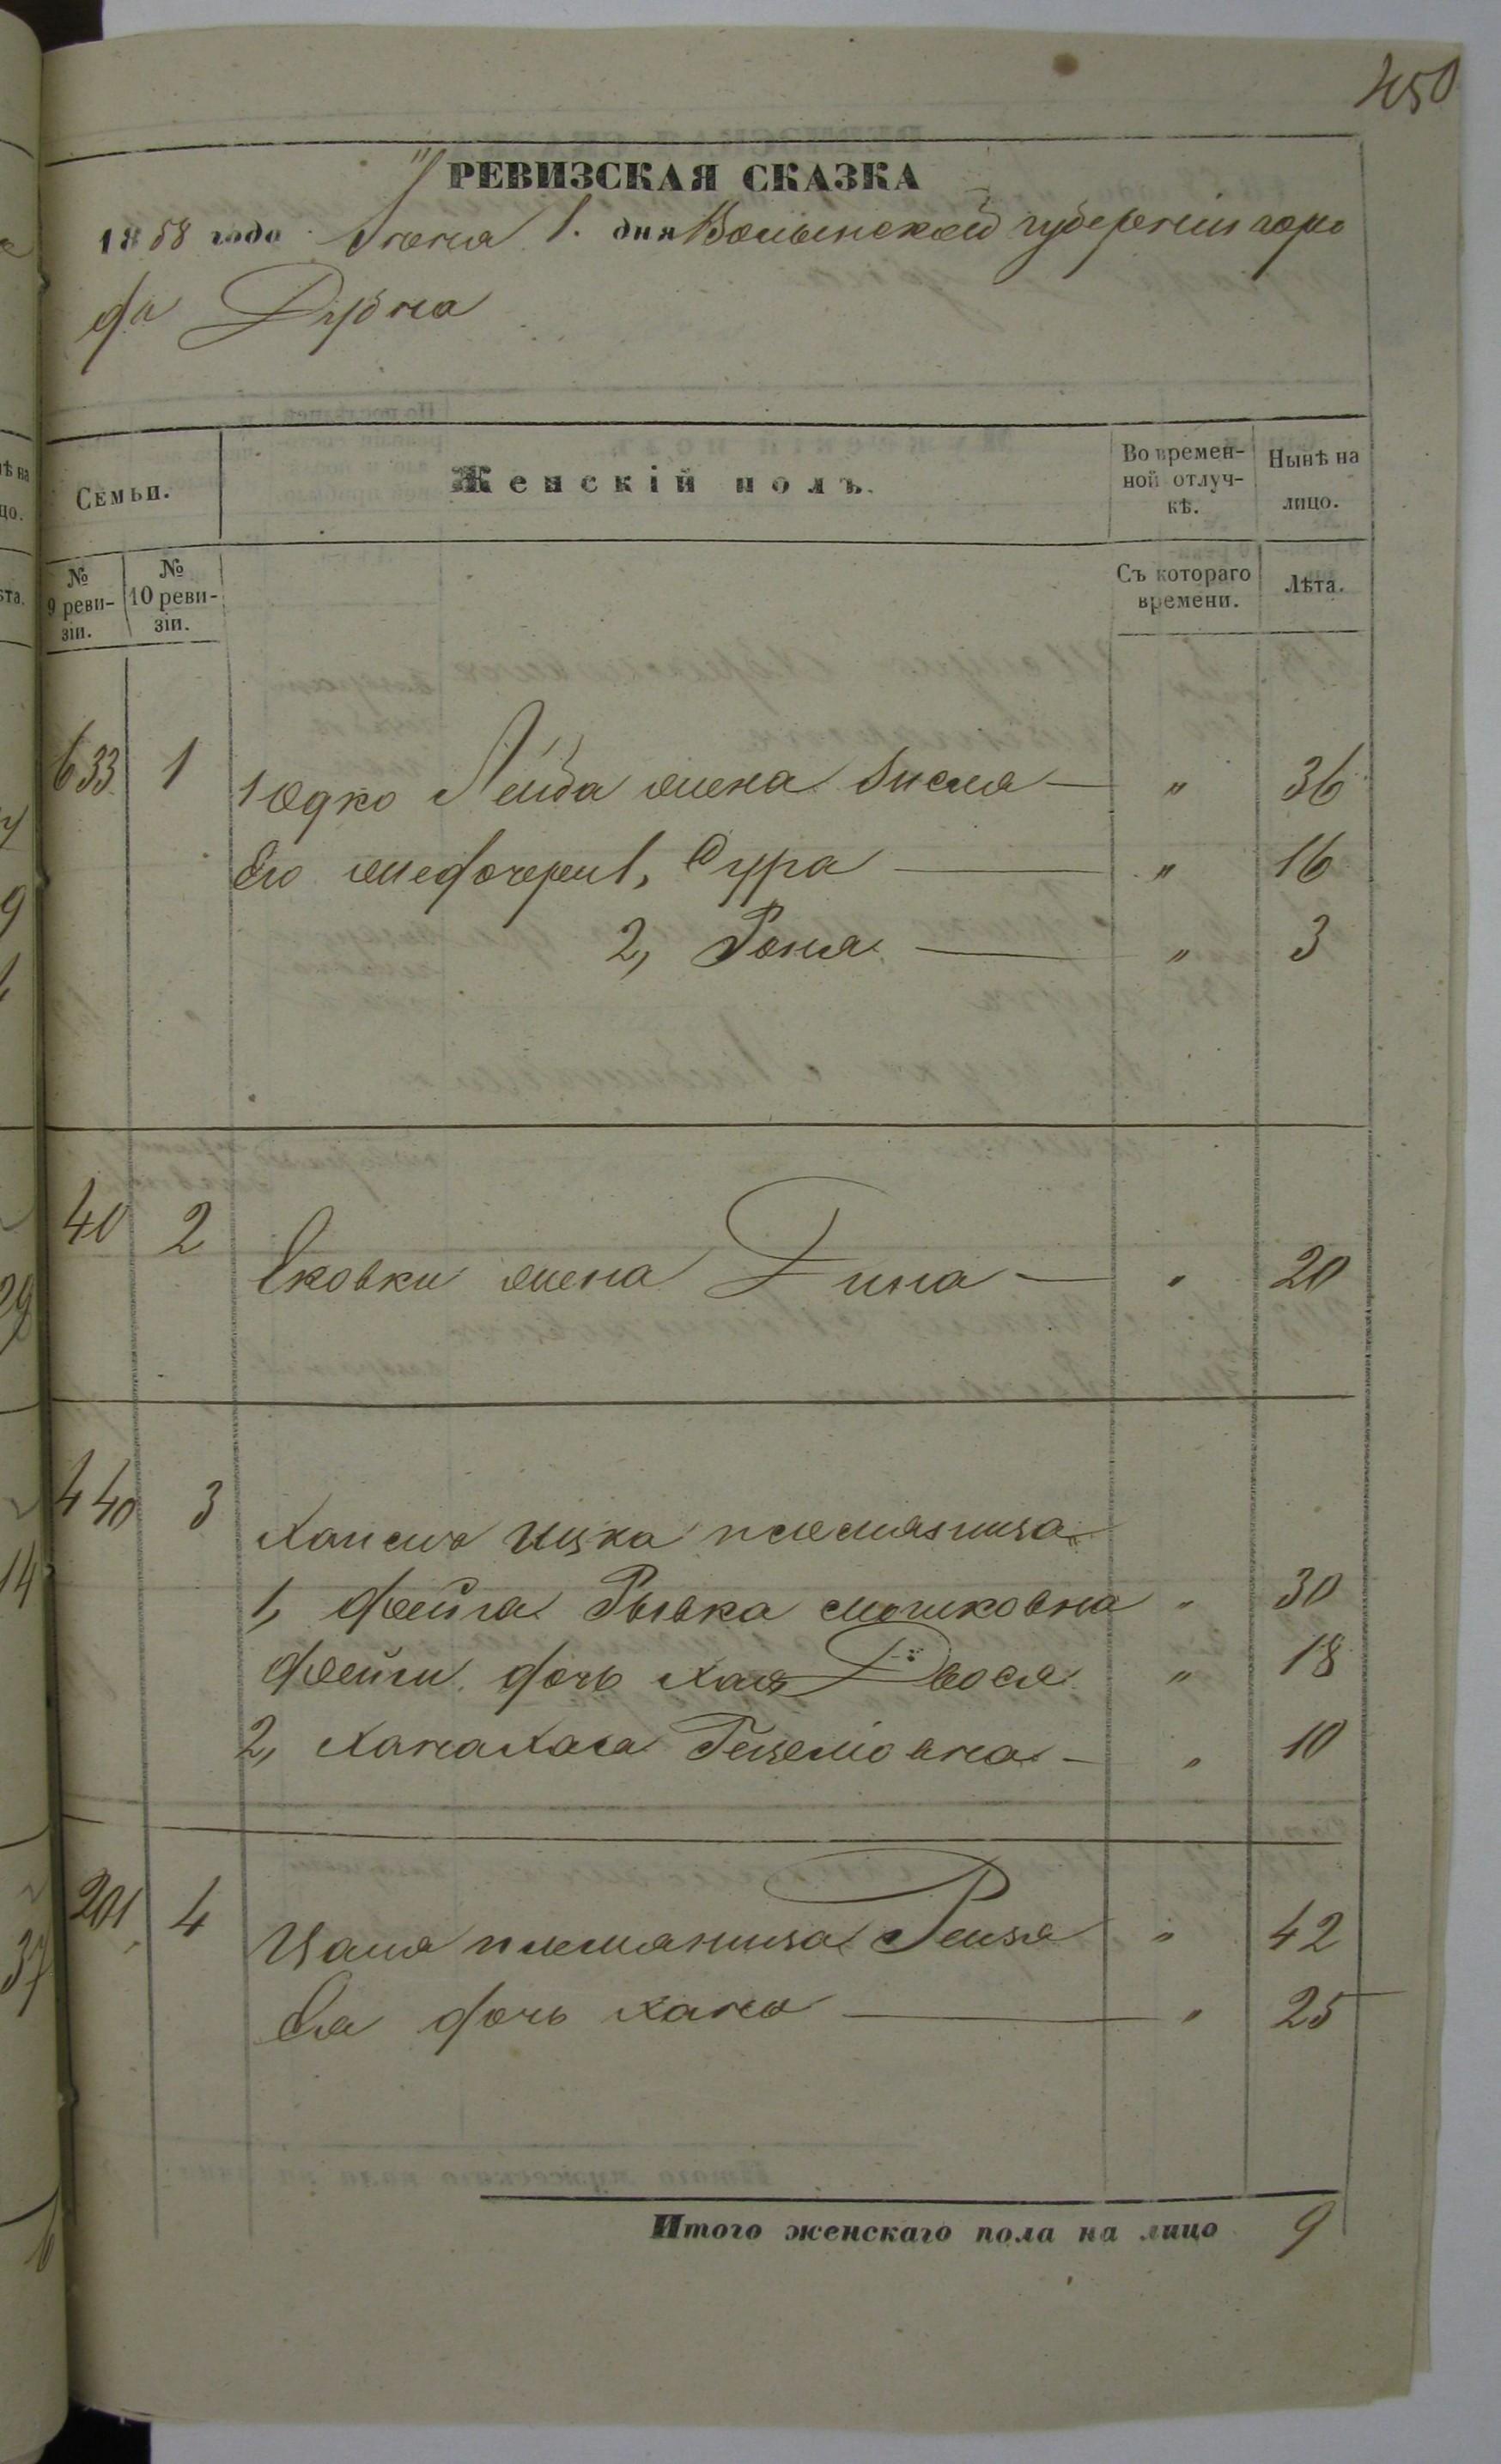 450
РЕВИЗСКАЯ СКАЗКА
1858 года Июня 1. дня Волынской губерніи горо
да Дубна
Семьи.
Женскій полъ.
Во времен-
ной отлуч-
кѣ.
Нынѣ на
лицо.
№
9 реви-
зіи.
№
10 реви-
зіи.
Съ котораго
времени.
Лѣта.
633 1 Лейба жена Бися — " 36
Его дочери 1, Сура — " 16
2, Роня — " 3
40 2 жена Дина — " 20
440 3 Ицка племяница
1, Фейга Рывка Мошковна " 30
Фейги дочь Хая Двося " 18
2, Хана Хая — " 10
201 4 племяница Рейзя " 42
Ея дочь Хана — " 25
Итого женскаго пола на лицо 9